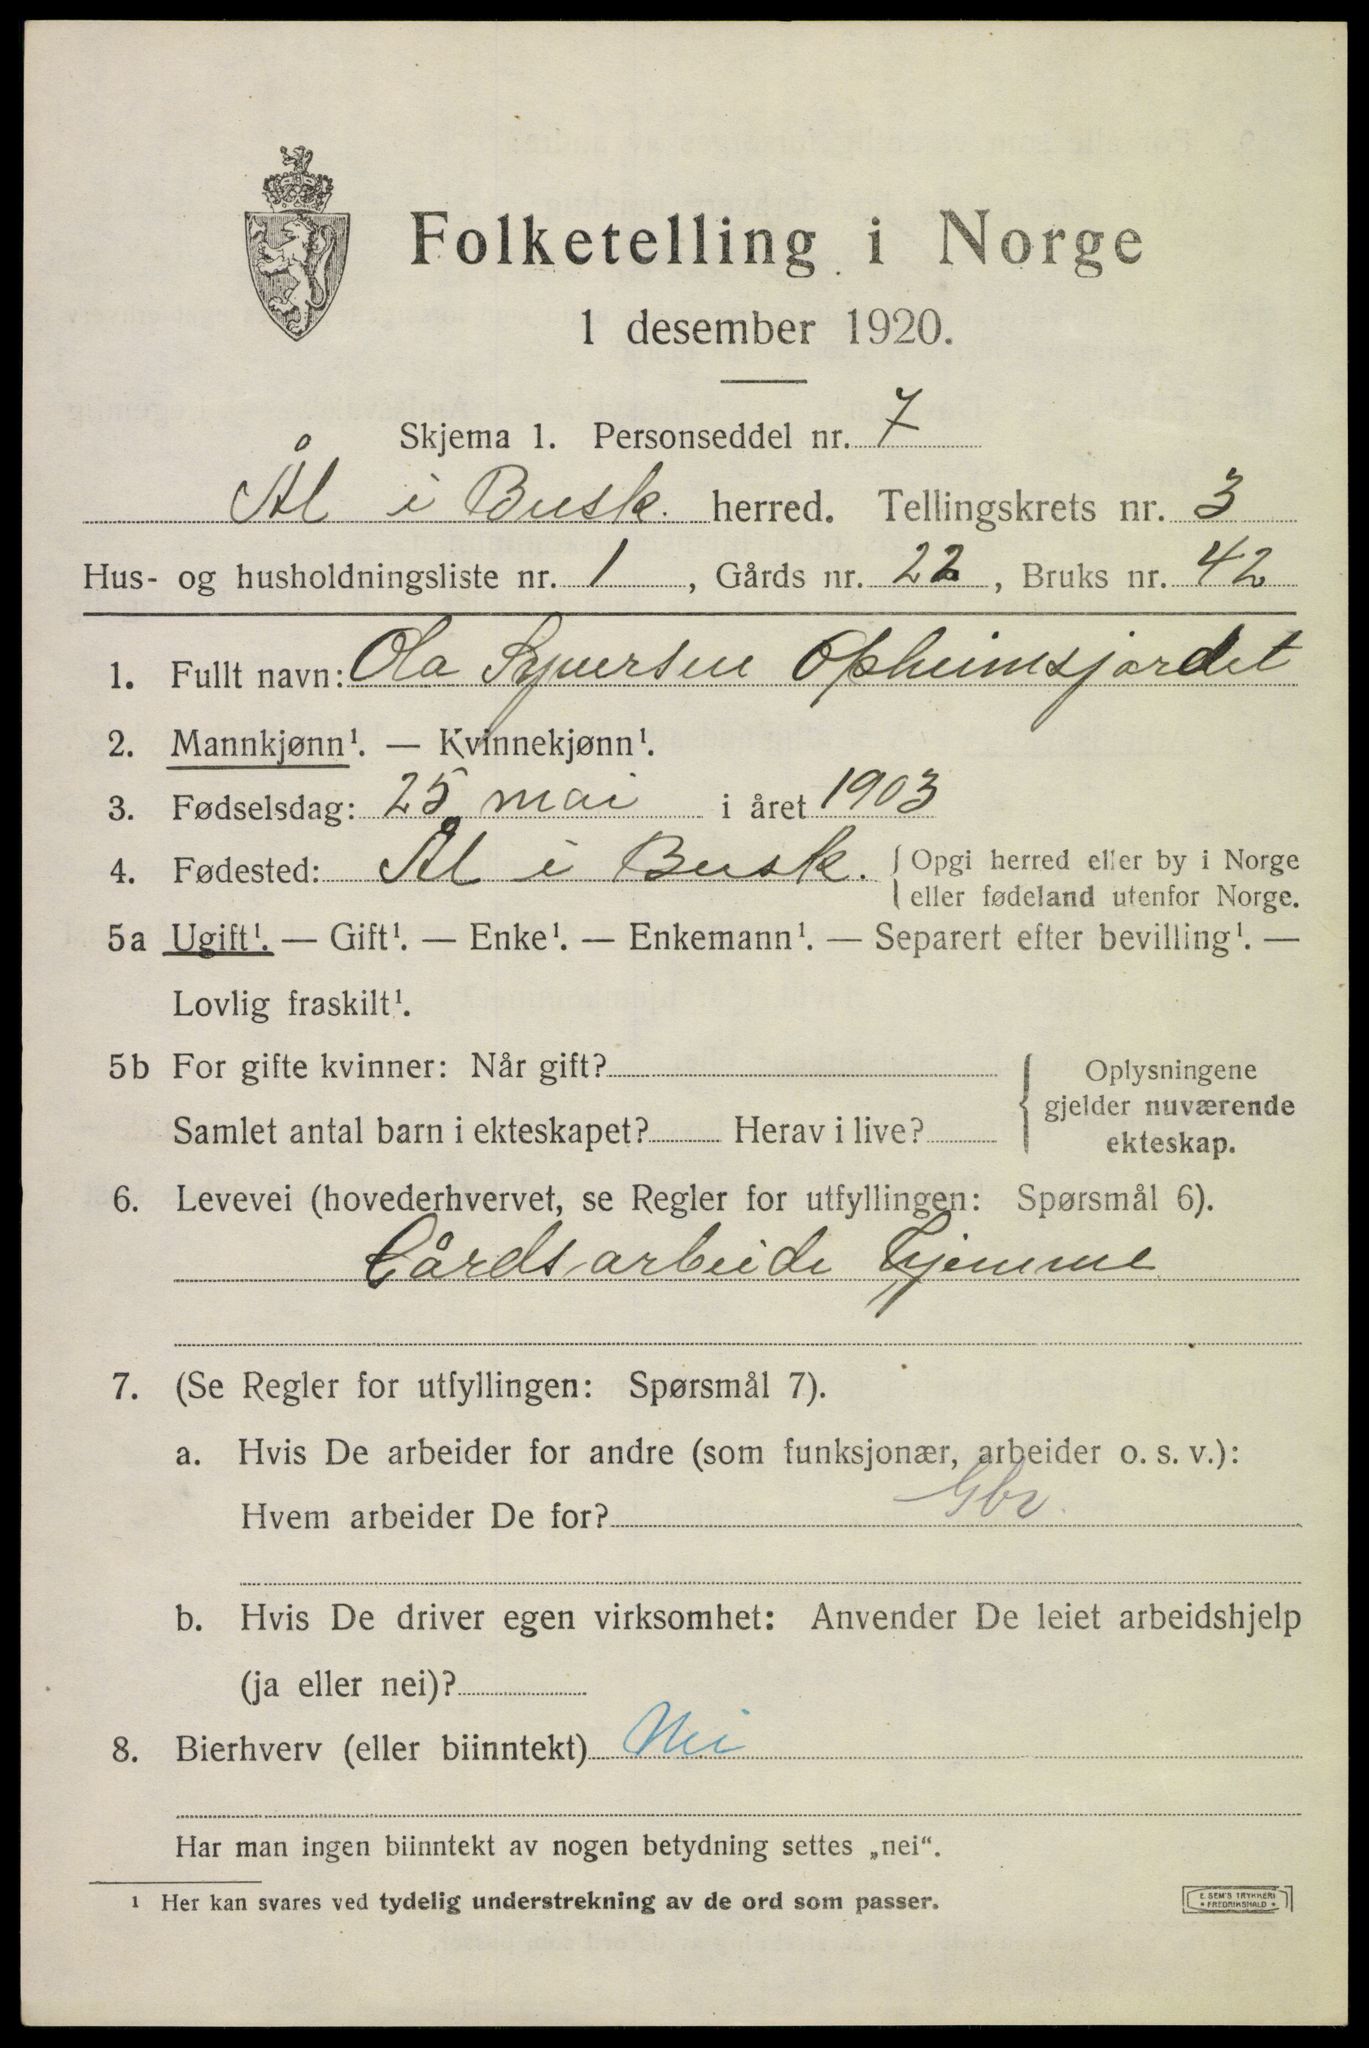 Folketelling i Norge
1 desember 1920.
Skjema 1. Personseddel nr. 7
Ål i Busk. herred. Tellingskrets nr. 3
Hus- og husholdningsliste nr. 1, Gårds nr. 22, Bruks nr. 42
1. Fullt navn: Ola Syversen Opheimsjordet
2. Mannkjønn¹. — Kvinnekjønn¹.
3. Fødselsdag: 25 mai i året 1903
4. Fødested: Ål i Busk. { Opgi herred eller by i Norge
eller fødeland utenfor Norge.
5a Ugift¹. — Gift¹. — Enke¹. — Enkemann¹. — Separert efter bevilling¹. —
Lovlig fraskilt¹.
5b For gifte kvinner: Når gift?
Samlet antal barn i ekteskapet? Herav i live?
{ Oplysningene
gjelder nuværende
ekteskap.
6. Levevei (hovederhvervet, se Regler for utfyllingen: Spørsmål 6).
Gårdsarbeide hjemme
7. (Se Regler for utfyllingen: Spørsmål 7).
a. Hvis De arbeider for andre (som funksjonær, arbeider o. s. v.):
Hvem arbeider De for? Gbr.
b. Hvis De driver egen virksomhet: Anvender De leiet arbeidshjelp
(ja eller nei)?
8. Bierhverv (eller biinntekt) Nei
Har man ingen biinntekt av nogen betydning settes „nei“.
¹ Her kan svares ved tydelig understrekning av de ord som passer.
E. SEM'S TRYKKERI
* FREDRIKSHALD *